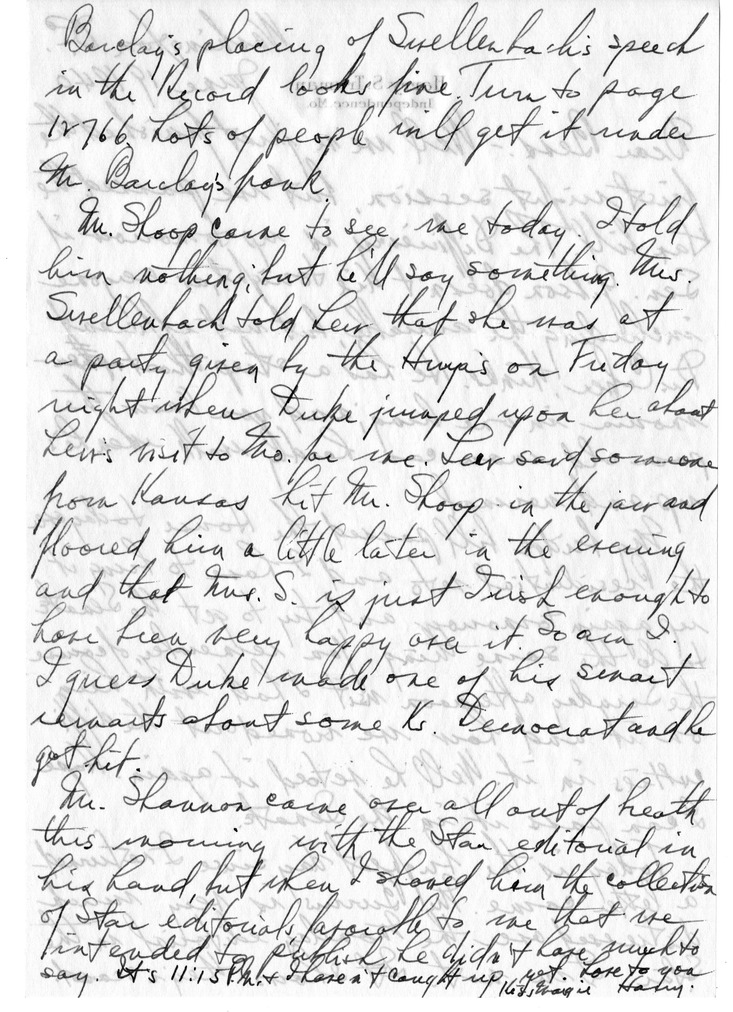 Barclay's placing of Swellenbach's speech
in the Record looks fine. Turn to page
12766. Lots of people will get it under
Mr. Barclay's frank
Mr. Shoop came to see me today. I told
him nothing; but he'll say something. Mrs.
Swellenbach told Lew that she was at
a party given by the Hurja's on Friday
night when Duke jumped upon her about
Lew's visit to Mo. for me. Lew said someone
from Kansas hit Mr. Shoop in the jaw and
floored him a little later in the evening
and that Mrs. S. is just Irish enough to
have been very happy over it. So am I.
I guess Duke made one of his smart
remarks about some Ks. Democrat and he
got hit.
Mr. Shannon came over all out of breath
this morning with the Star editorial in
his hand, but when I showed him the collection
of Star editorials favorable to me that we
intended to publish he didn't have much to
say. It's 11:15 P.M. & I haven't caught up yet. Love to you
Kiss Margie Harry.
Harry S. Truman
Independence, Mo.